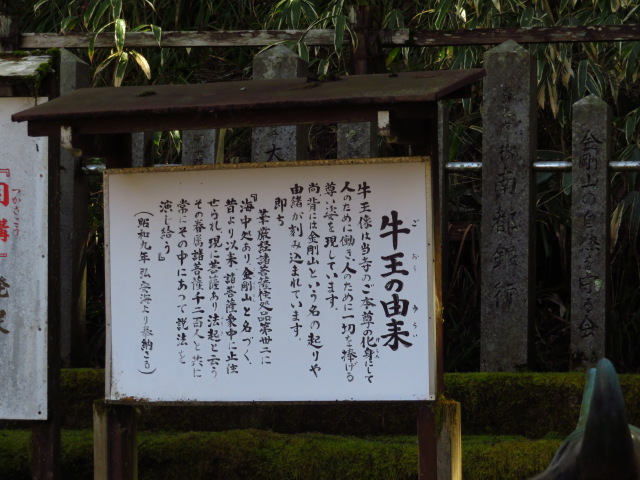 牛王の由来
ごおう ゆらい
牛王像は当寺のご本尊の化身にして
人のために働き人のために一切を捧げる
尊い姿を現しています。
尚背には金剛山という名の起りや
由緒が刻み込まれています。
即ち
『華厳経諸菩薩住処品第廿二に
海中処あり、金剛山と名づく。
昔より以来諸菩薩衆中に止住
せられ、現に菩薩あり法起と云う
その眷属諸菩薩千二百人と共に
常にその中にあって説法を
演し給う』
(昭和九年 弘安海より奉納さる)
金剛山の自然を守る会